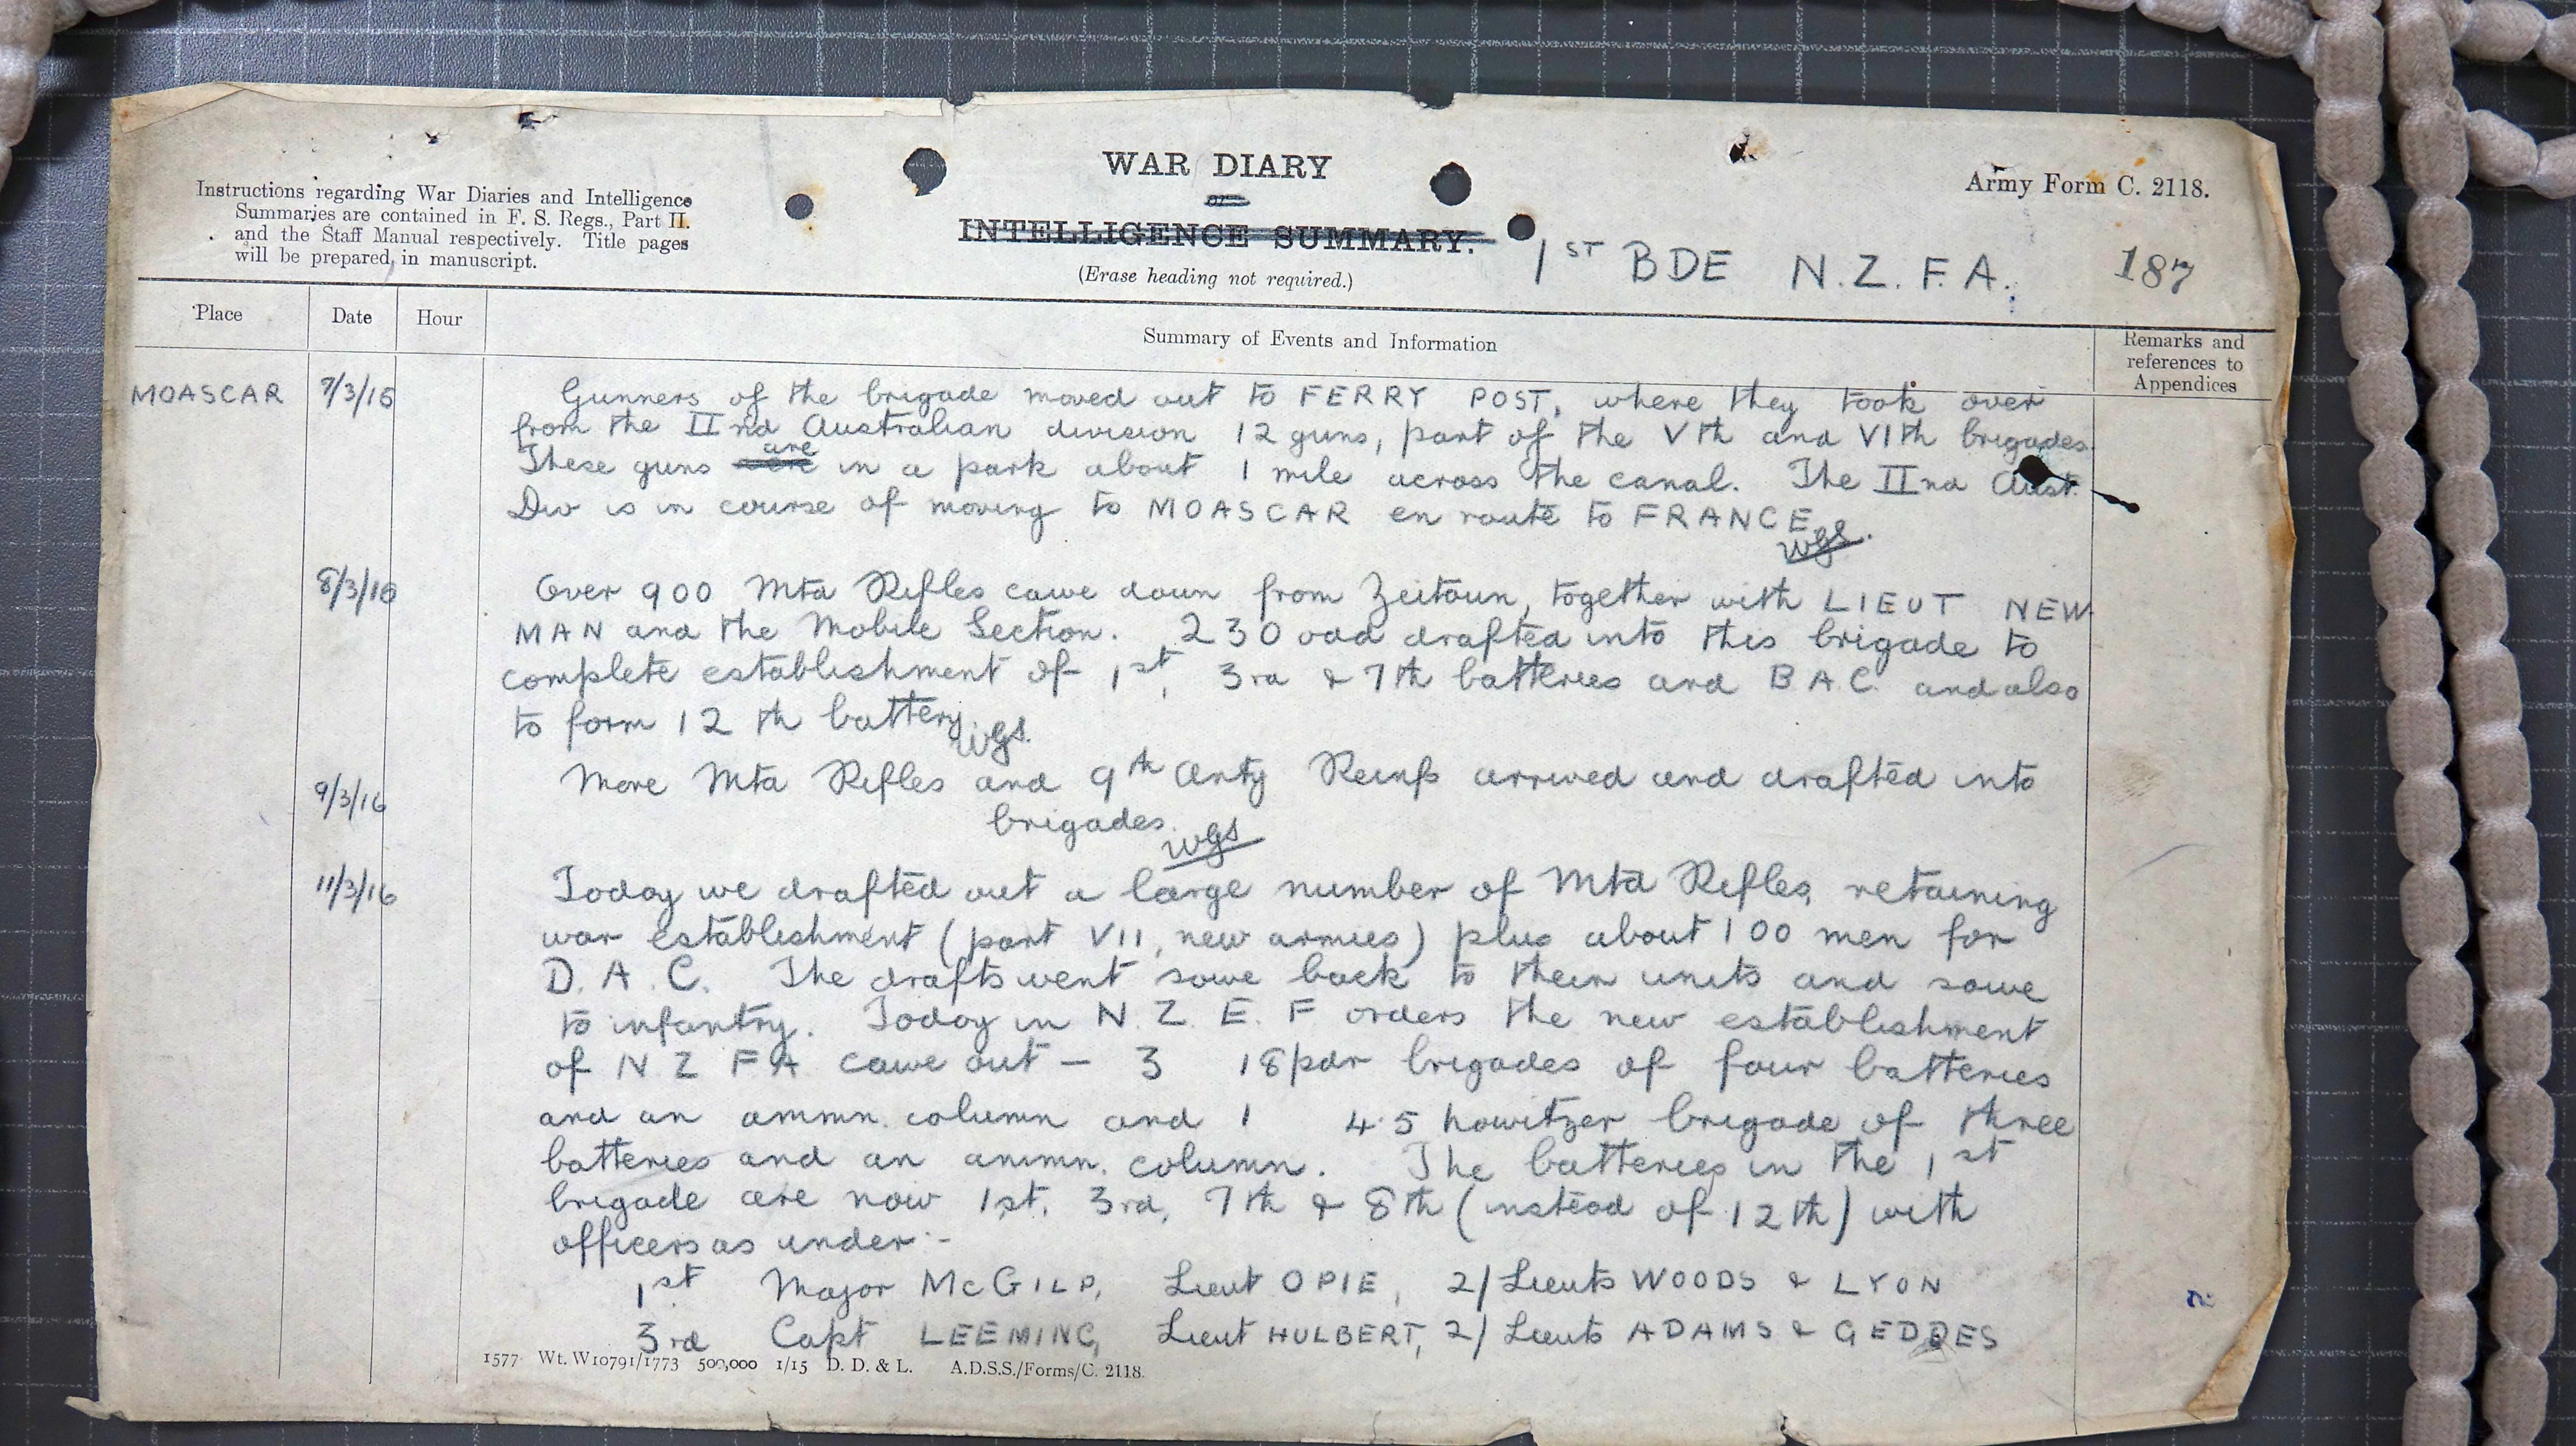 Instructions regarding War Diaries and Intelligence
Summaries are contained in F. S. Regs., Part II.
and the Staff Manual respectively. Title pages
will be prepared in manuscript.
WAR DIARY
or
INTELLIGENCE SUMMARY.
(Erase heading not required.)
Army Form C. 2118.
1ST BDE N.Z.F.A.
187
Place
Date
Hour
Summary of Events and Information
Remarks and
references to
Appendices
MOASCAR 7/3/16 Gunners of the brigade moved out to FERRY POST, where they took over
from the IInd Australian division 12 guns, part of the Vth and VIth brigades.
These guns are in a park about 1 mile across the canal. The IInd Aust.
Div is in course of moving to MOASCAR en route to FRANCE
WGS.
8/3/16 Over 900 Mtd Rifles came down from Zeitoun, together with LIEUT NEW
MAN and the Mobile Section. 230 odd drafted into this brigade to
complete establishment of 1st, 3rd & 7th batteries and B A C. and also
to form 12 th battery. WGS.
9/3/16 More Mtd Rifles and 9th Arty Reinfs arrived and drafted into
brigades.
WGS
11/3/16 Today we drafted out a large number of Mtd Rifles, retaining
war establishment (part VII, new armies) plus about 100 men for
D. A. C. The drafts went some back to their units and some
to infantry. Today in N. Z. E. F orders the new establishment
of N Z F A came out — 3 18pdr brigades of four batteries
and an ammn. column and 1 4.5 howitzer brigade of three
batteries and an ammn. column. The batteries in the 1st
brigade are now 1st, 3rd, 7th & 8th (instead of 12th) with
officers as under :-
1st Major McGILP, Lieut OPIE, 2/ Lieuts WOODS & LYON
3rd Capt LEEMING, Lieut HULBERT, 2/ Lieuts ADAMS & GEDDES
1577 Wt. W10791/1773 500,000 1/15 D. D. & L. A.D.S.S./Forms/C. 2118.